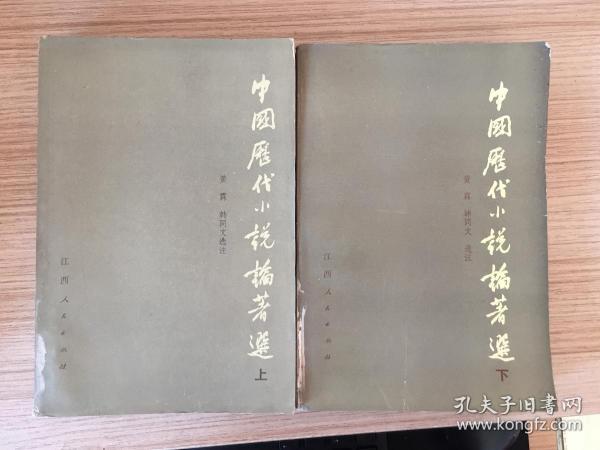 中國歷代小說論著選
上
黄霖 韩同文选注
江西人民出版社
中國歷代小說論著選
下
黄霖 韩同文 选注
江西人民出版社
孔夫子旧书网
www.kongfz.com